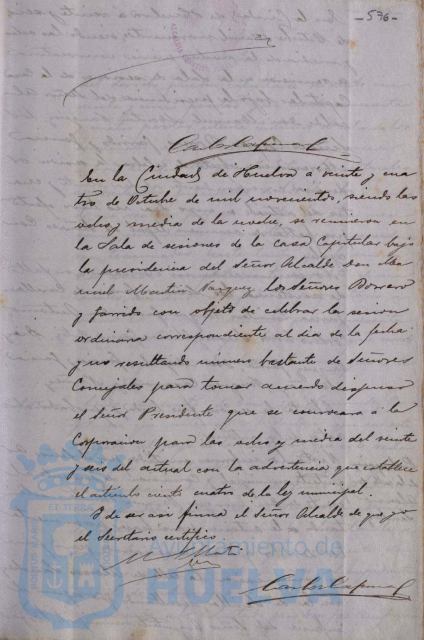 -596-
En la Ciudad de Huelva á veinte y cua
tro de Octubre de mil novecientos, siendo las
ocho y media de la noche, se reunieron en
la Sala de sesiones de la casa Capitular bajo
la presidencia del Señor Alcalde don Ma
nuel Martin Vazquez los Señores Borrero
y Garrido con objeto de celebrar la sesion
ordinaria correspondiente al dia de la fecha
y no resultando número bastante de Señores
Concejales para tomar acuerdo dispuso
el Señor Presidente que se convocara á la
Corporacion para las ocho y media del veinte
y seis del actual con la advertencia que establece
el artículo ciento cuatro de la ley municipal.
Y de ser asi firma el Señor Alcalde de que yo
el Secretario certifico.
Ayuntamiento de
HUELVA